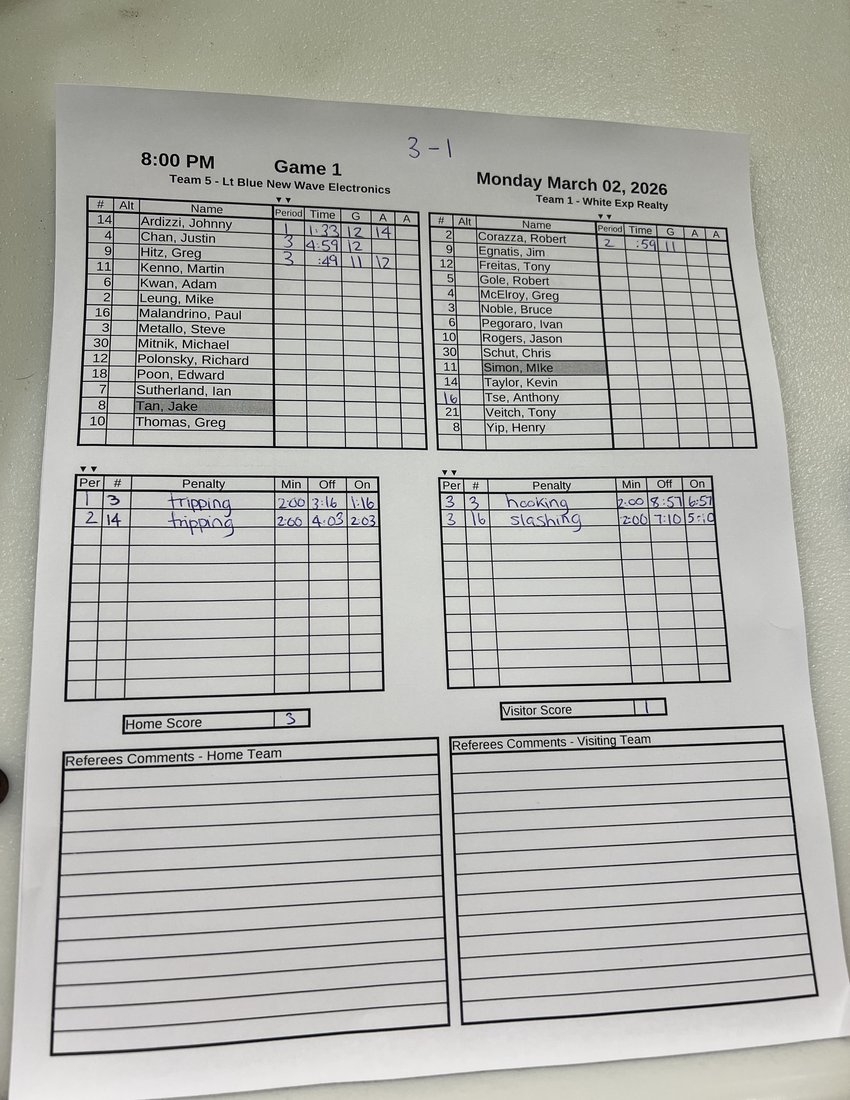 3-1
8:00 PM Game 1 Monday March 02, 2026
Team 5 - Lt Blue New Wave Electronics
Team 1 - White Exp Realty
# Alt Name Period Time G A A
14 Ardizzi, Johnny 1 1:33 12 14
4 Chan, Justin 3 4:59 12
9 Hitz, Greg 3 :49 11 12
11 Kenno, Martin
6 Kwan, Adam
2 Leung, Mike
16 Malandrino, Paul
3 Metallo, Steve
30 Mitnik, Michael
12 Polonsky, Richard
18 Poon, Edward
7 Sutherland, Ian
8 Tan, Jake
10 Thomas, Greg
# Alt Name Period Time G A A
2 Corazza, Robert 2 :59 11
9 Egnatis, Jim
12 Freitas, Tony
5 Gole, Robert
4 McElroy, Greg
3 Noble, Bruce
6 Pegoraro, Ivan
10 Rogers, Jason
30 Schut, Chris
11 Simon, MIke
14 Taylor, Kevin
16 Tse, Anthony
21 Veitch, Tony
8 Yip, Henry
Per # Penalty Min Off On
1 3 tripping 2:00 3:16 1:16
2 14 tripping 2:00 4:03 2:03
Per # Penalty Min Off On
3 3 hooking 2:00 8:57 6:57
3 16 slashing 2:00 7:10 5:10
Home Score 3
Visitor Score 1
Referees Comments - Home Team
Referees Comments - Visiting Team